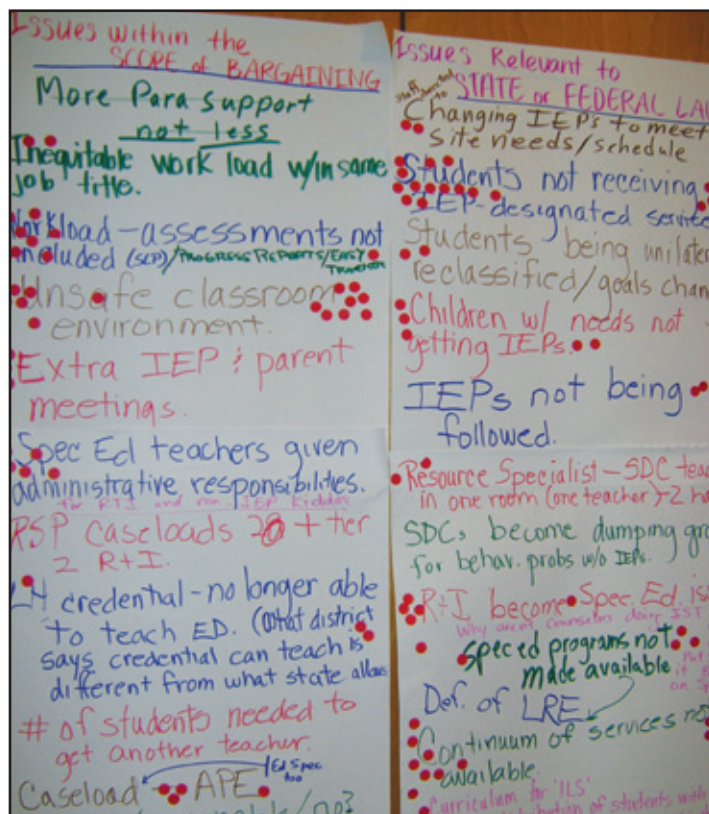 Issues within the
SCOPE of BARGAINING
More Para support
not less
Inequitable work load w/in same
job title.
Workload - assessments not
included (SCP)/PROGRESS REPORTS/EASY
Unsafe classroom
environment.
Extra IEP & parent
meetings.
Spec Ed teachers given
administrative responsibilities.
for RTI and non-IEP Kiddos
RSP caseloads + tier
2 R+I.
LH credential - no longer able
to teach ED. (What district
says credential can teach is
different from what state allows
# of students needed to
get another teacher.
Ed Spec
too
Caseload APE
Issues Relevant to
STATE or FEDERAL LA
Staff
Changing IEPs to meet
site needs/schedule
Students not receiving
IEP-designated service
Students being unilater
reclassified/goals chan
Children w/ needs not
getting IEPs.
IEPs not being
followed.
Resource Specialist - SDC teac
in one room (one teacher) - 2 ha
SDCs become dumping gro
for behav. probs w/o IEPs.
R+I become Spec. Ed. is
Why aren't counselors doing SST
sped programs not
made available
Put
it
on
Def. of LRE
Continuum of services no
available.
Curriculum for 'ILS'
of students with